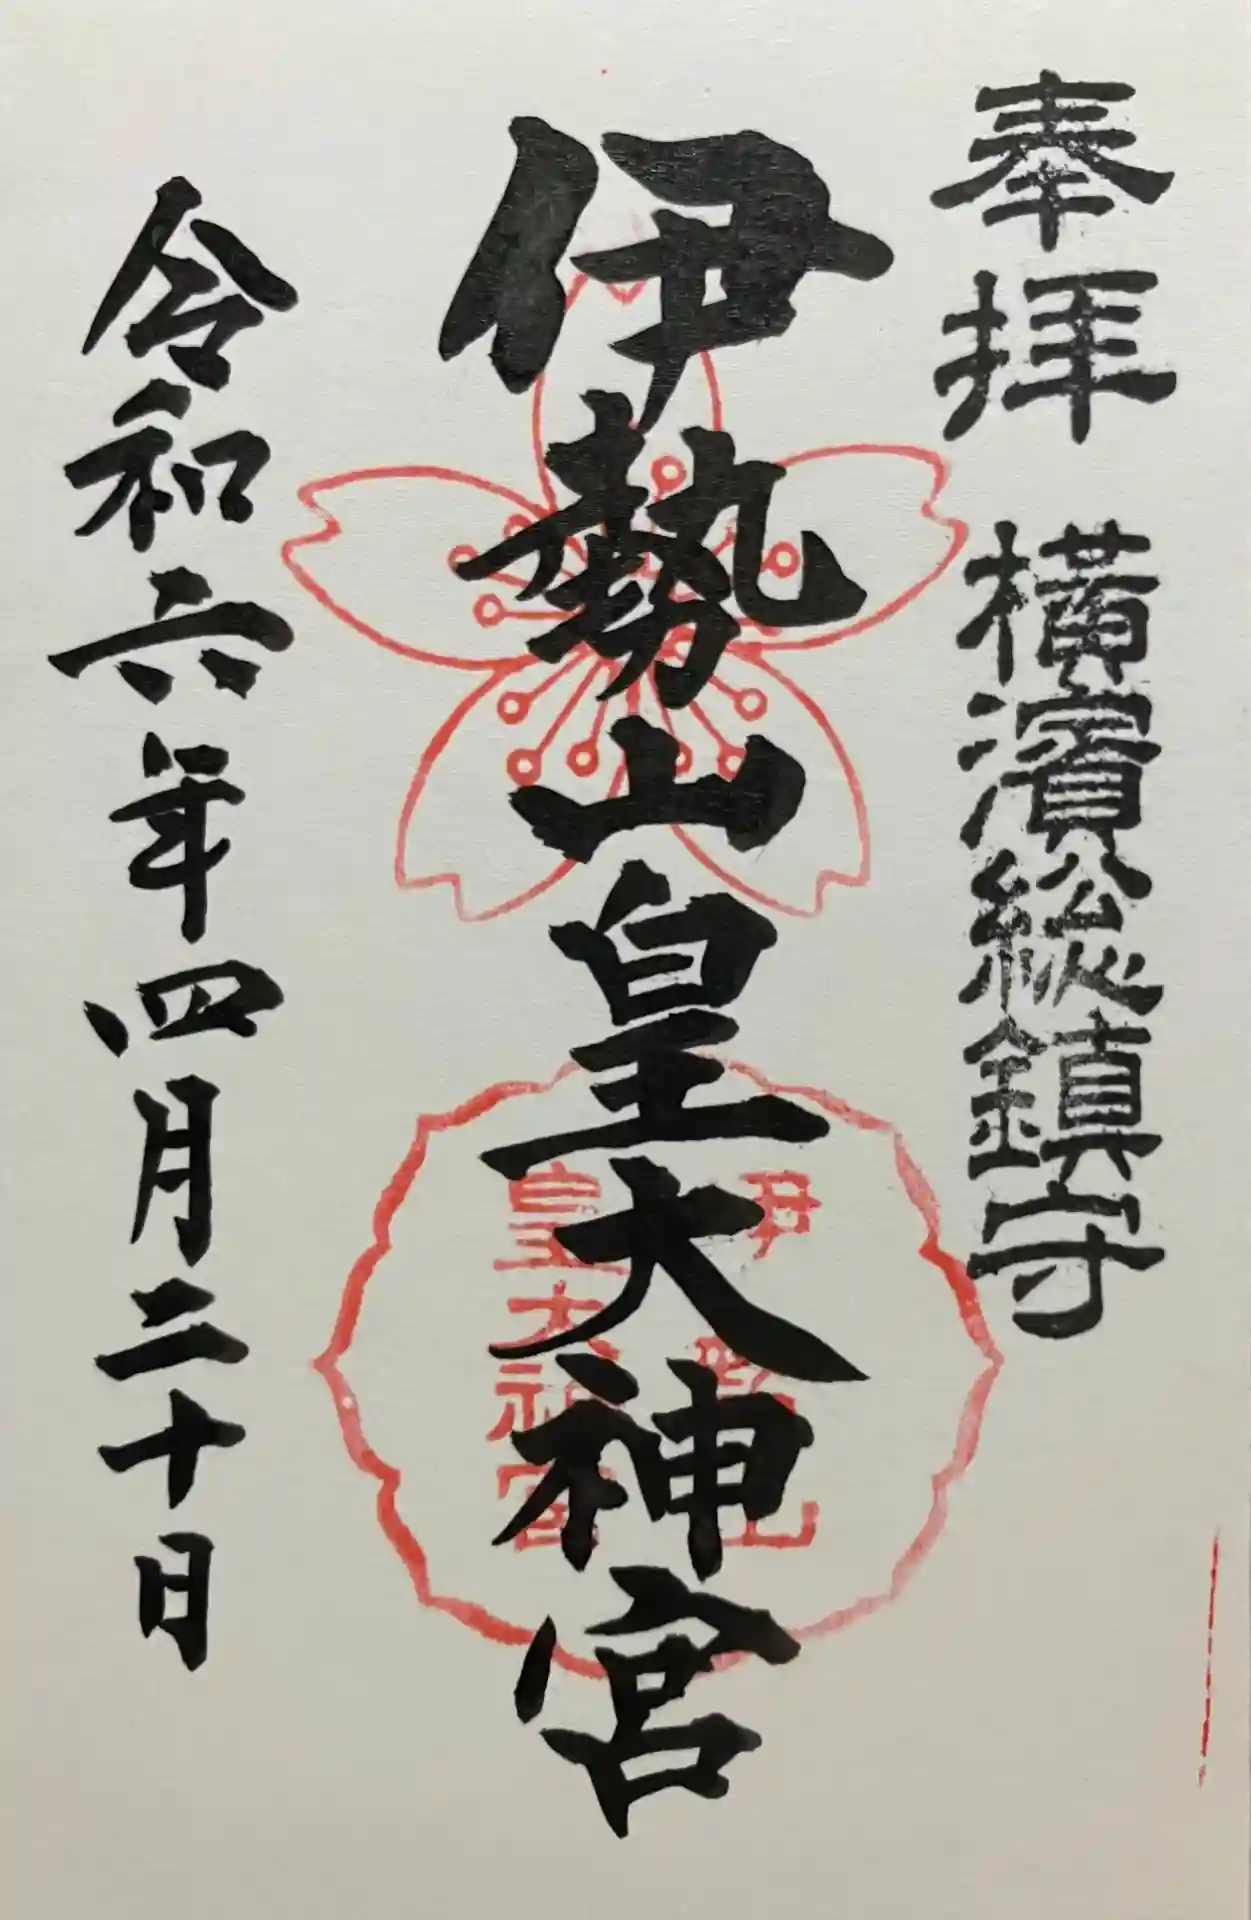 奉拝 横濱総鎮守
伊勢山皇大神宮
伊勢山
皇大神宮
令和六年四月二十日